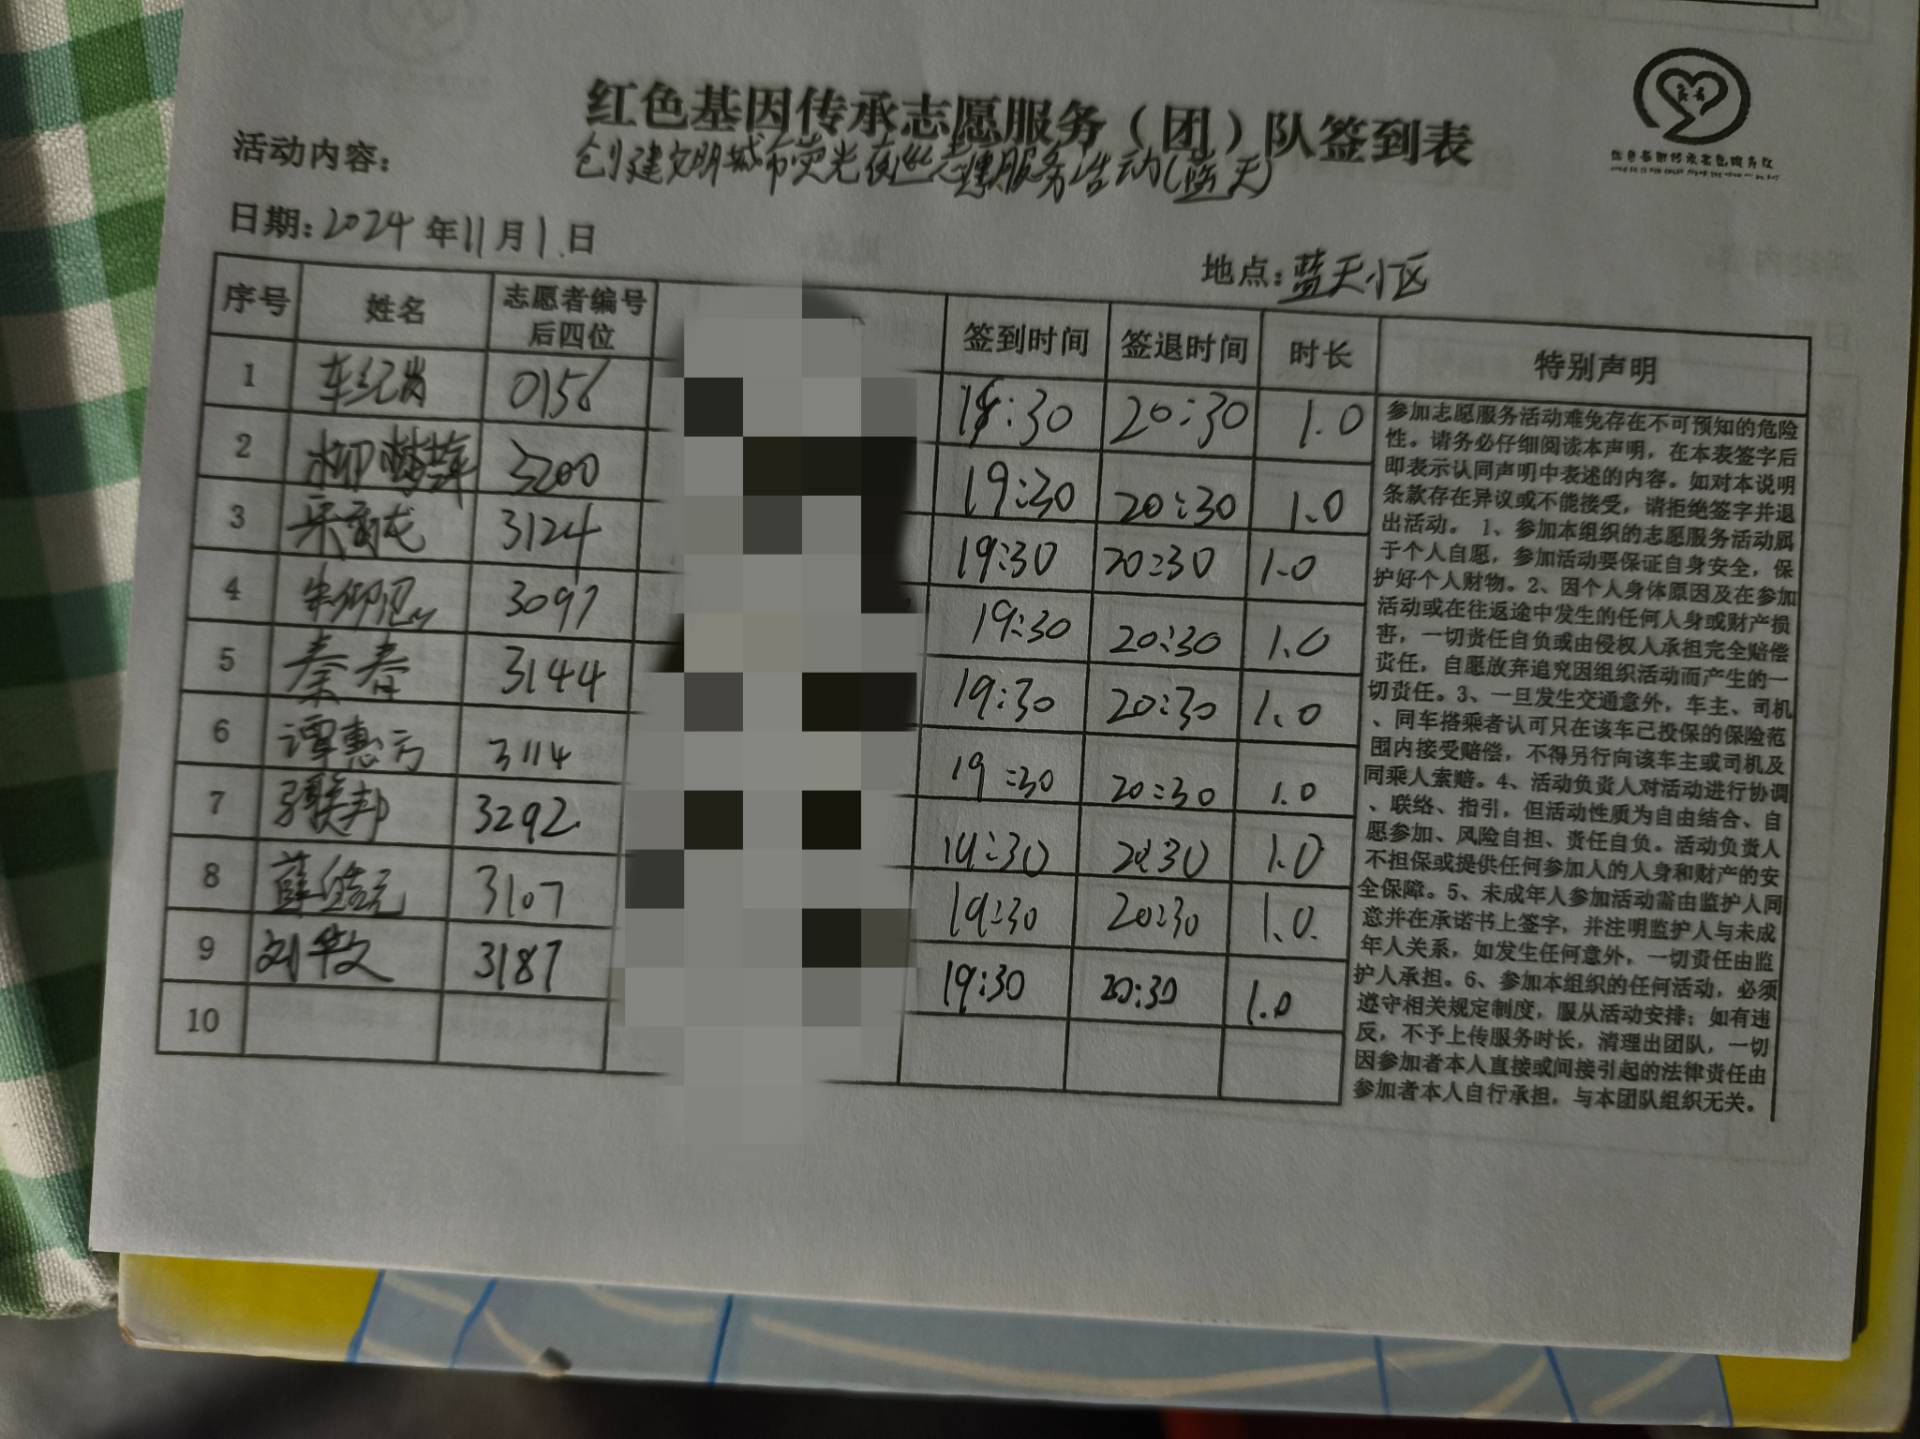 红色基因传承志愿服务（团）队签到表
活动内容： 创建文明城市荧光夜巡志愿服务活动(蓝天)
日期：2024年11月1日
地点：蓝天小区
序号 姓名 志愿者编号后四位 签到时间 签退时间 时长 特别声明
1 0156 19:30 20:30 1.0
2 3200 19:30 20:30 1.0
3 3124 19:30 20:30 1.0
4 3097 19:30 20:30 1.0
5 秦春 3144 19:30 20:30 1.0
6 谭惠方 3114 19:30 20:30 1.0
7 3292 19:30 20:30 1.0
8 3107 19:30 20:30 1.0
9 刘华文 3187 19:30 20:30 1.0
10
参加志愿服务活动难免存在不可预知的危险
性。请务必仔细阅读本声明，在本表签字后
即表示认同声明中表述的内容。如对本说明
条款存在异议或不能接受，请拒绝签字并退
出活动。 1、参加本组织的志愿服务活动属
于个人自愿，参加活动要保证自身安全，保
护好个人财物。2、因个人身体原因及在参加
活动或在往返途中发生的任何人身或财产损
害，一切责任自负或由侵权人承担完全赔偿
责任，自愿放弃追究因组织活动而产生的一
切责任。3、一旦发生交通意外，车主、司机
、同车搭乘者认可只在该车已投保的保险范
围内接受赔偿，不得另行向该车主或司机及
同乘人索赔。4、活动负责人对活动进行协调
、联络、指引，但活动性质为自由结合、自
愿参加、风险自担、责任自负。活动负责人
不担保或提供任何参加人的人身和财产的安
全保障。5、未成年人参加活动需由监护人同
意并在承诺书上签字，并注明监护人与未成
年人关系，如发生任何意外，一切责任由监
护人承担。6、参加本组织的任何活动，必须
遵守相关规定制度，服从活动安排；如有违
反，不予上传服务时长，清理出团队，一切
因参加者本人直接或间接引起的法律责任由
参加者本人自行承担，与本团队组织无关。